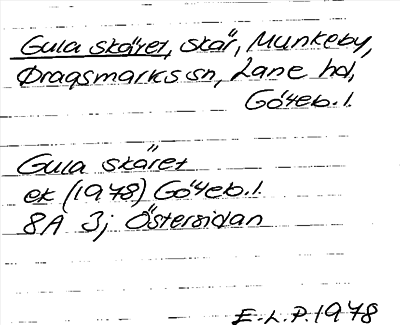 Gula skäret, skär, Munkeby,
Dragsmarks sn, Lane hd,
Göteb. l.
Gula skäret
ek (1978) Göteb. l.
8A 3j Östersidan
E.L.P. 1978